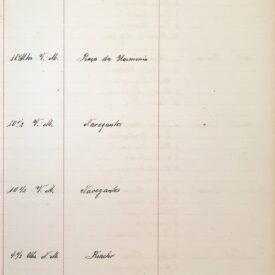 10 Uhr V. M. Praça da Harmonia
10½ V. M. Navegantes
10½ V. M. Navegantes
4½ Uhr N. M. Riacho